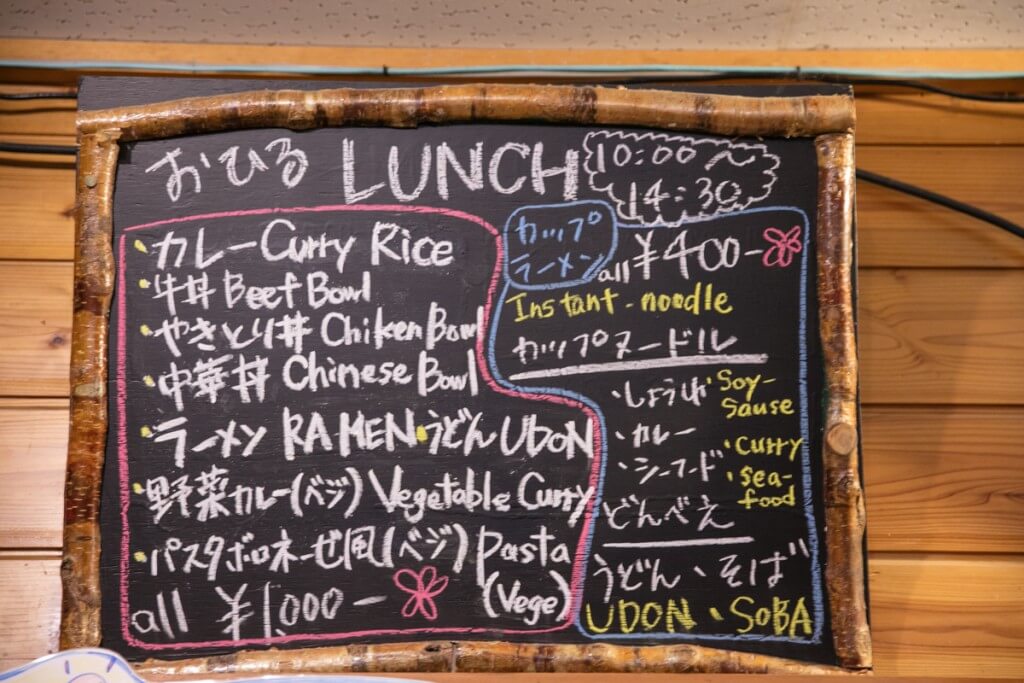 おひる LUNCH 10:00〜
14:30
・カレー Curry Rice
・牛丼 Beef Bowl
・やきとり丼 Chiken Bowl
・中華丼 Chinese Bowl
・ラーメン RAMEN ・うどん UDON
・野菜カレー(ベジ) Vegetable Curry
・パスタボロネーゼ風(ベジ) Pasta
(Vege)
all ¥1,000-
カップ
ラーメン
all ¥400-
Instant-noodle
カップヌードル
・しょうゆ・Soy-
Sause
・カレー ・Curry
・シーフード ・Sea-
food
どんべえ
うどん、そば
UDON、SOBA